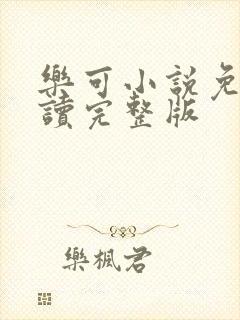 樂可小說免
讀完整版
樂楓君